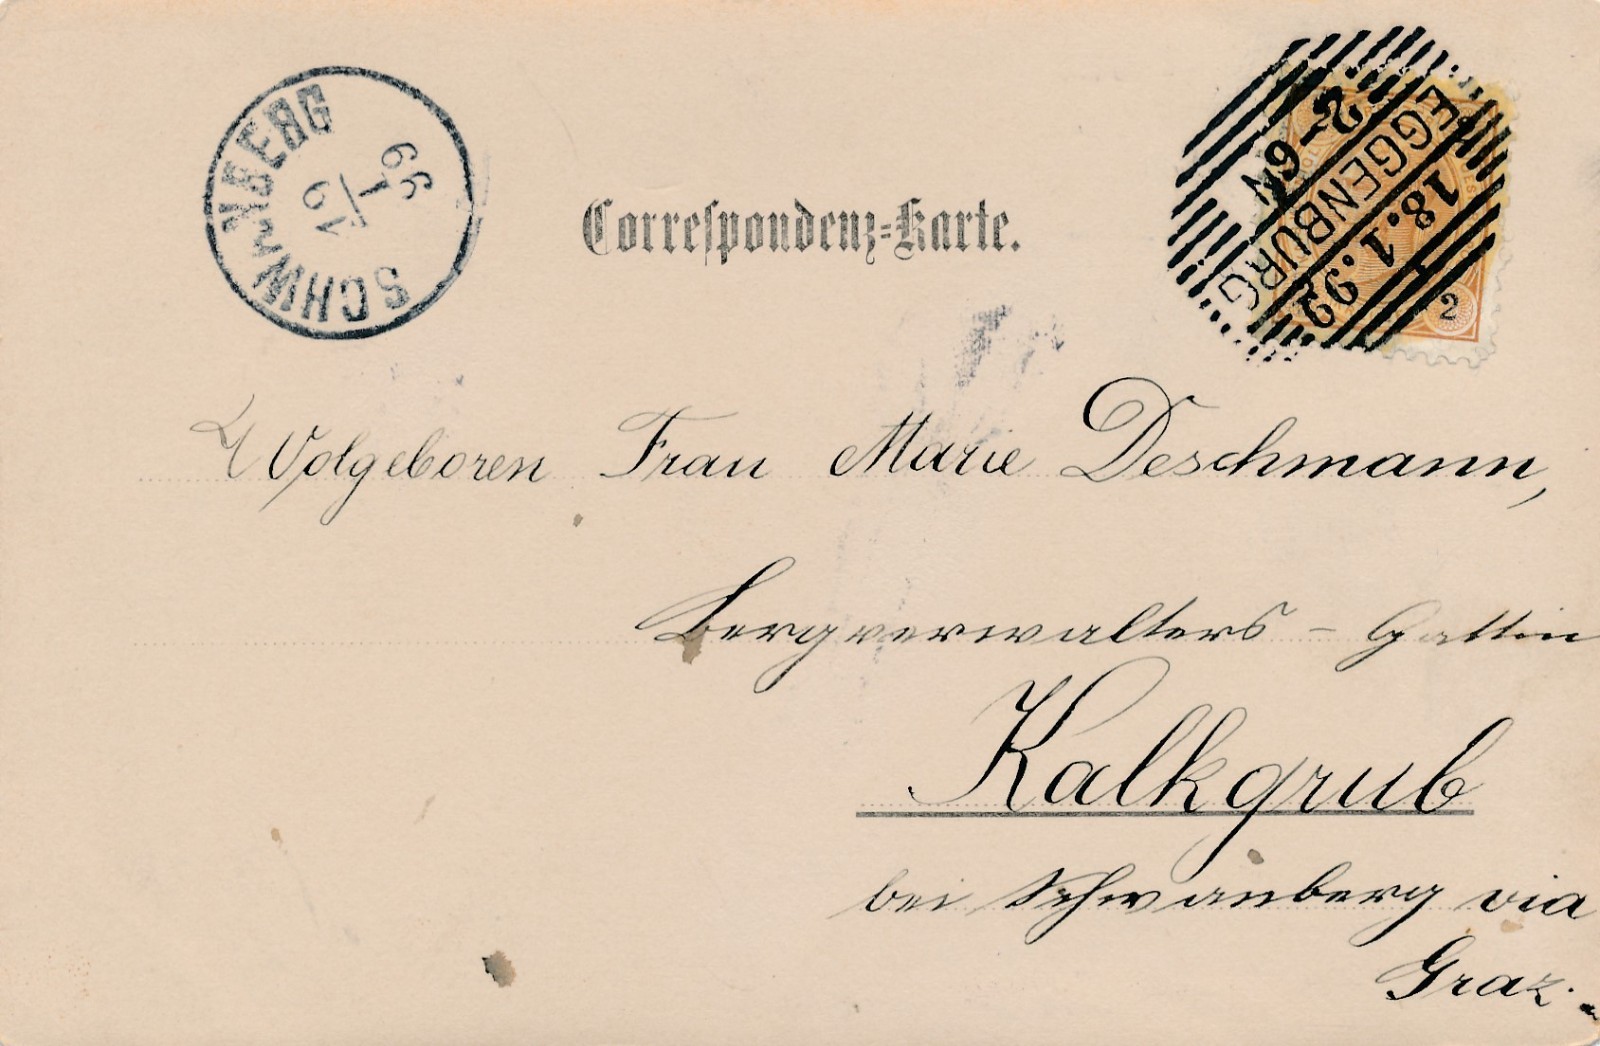 SCHWANBERG
19/1
99
Correspondenz-Karte.
2-6N
EGGENBURG
18.1.99
2
Wolgeboren Frau Marie Deschmann,
Bergverwalters - Gattin
Kalkgrub
bei Schwanberg via
Graz.